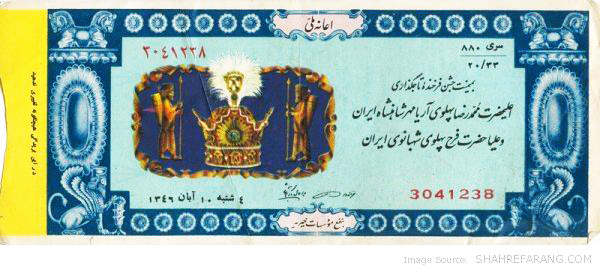 اعانه ملی
۳۰۴۱۲۳۸
سری ۸۸۰
۲۰/۳۳
بمیمنت جشن فرخنده تاجگذاری
اعلیحضرت محمدرضا پهلوی آریامهر شاهنشاه ایران
و علیاحضرت فرح پهلوی شهبانوی ایران
۴ شنبه ۱۰ آبان ۱۳۴۶
3041238
بنفع مؤسسات خیریه
هیچگونه تغییری ندهید
Image Source: SHAHREFARANG.COM